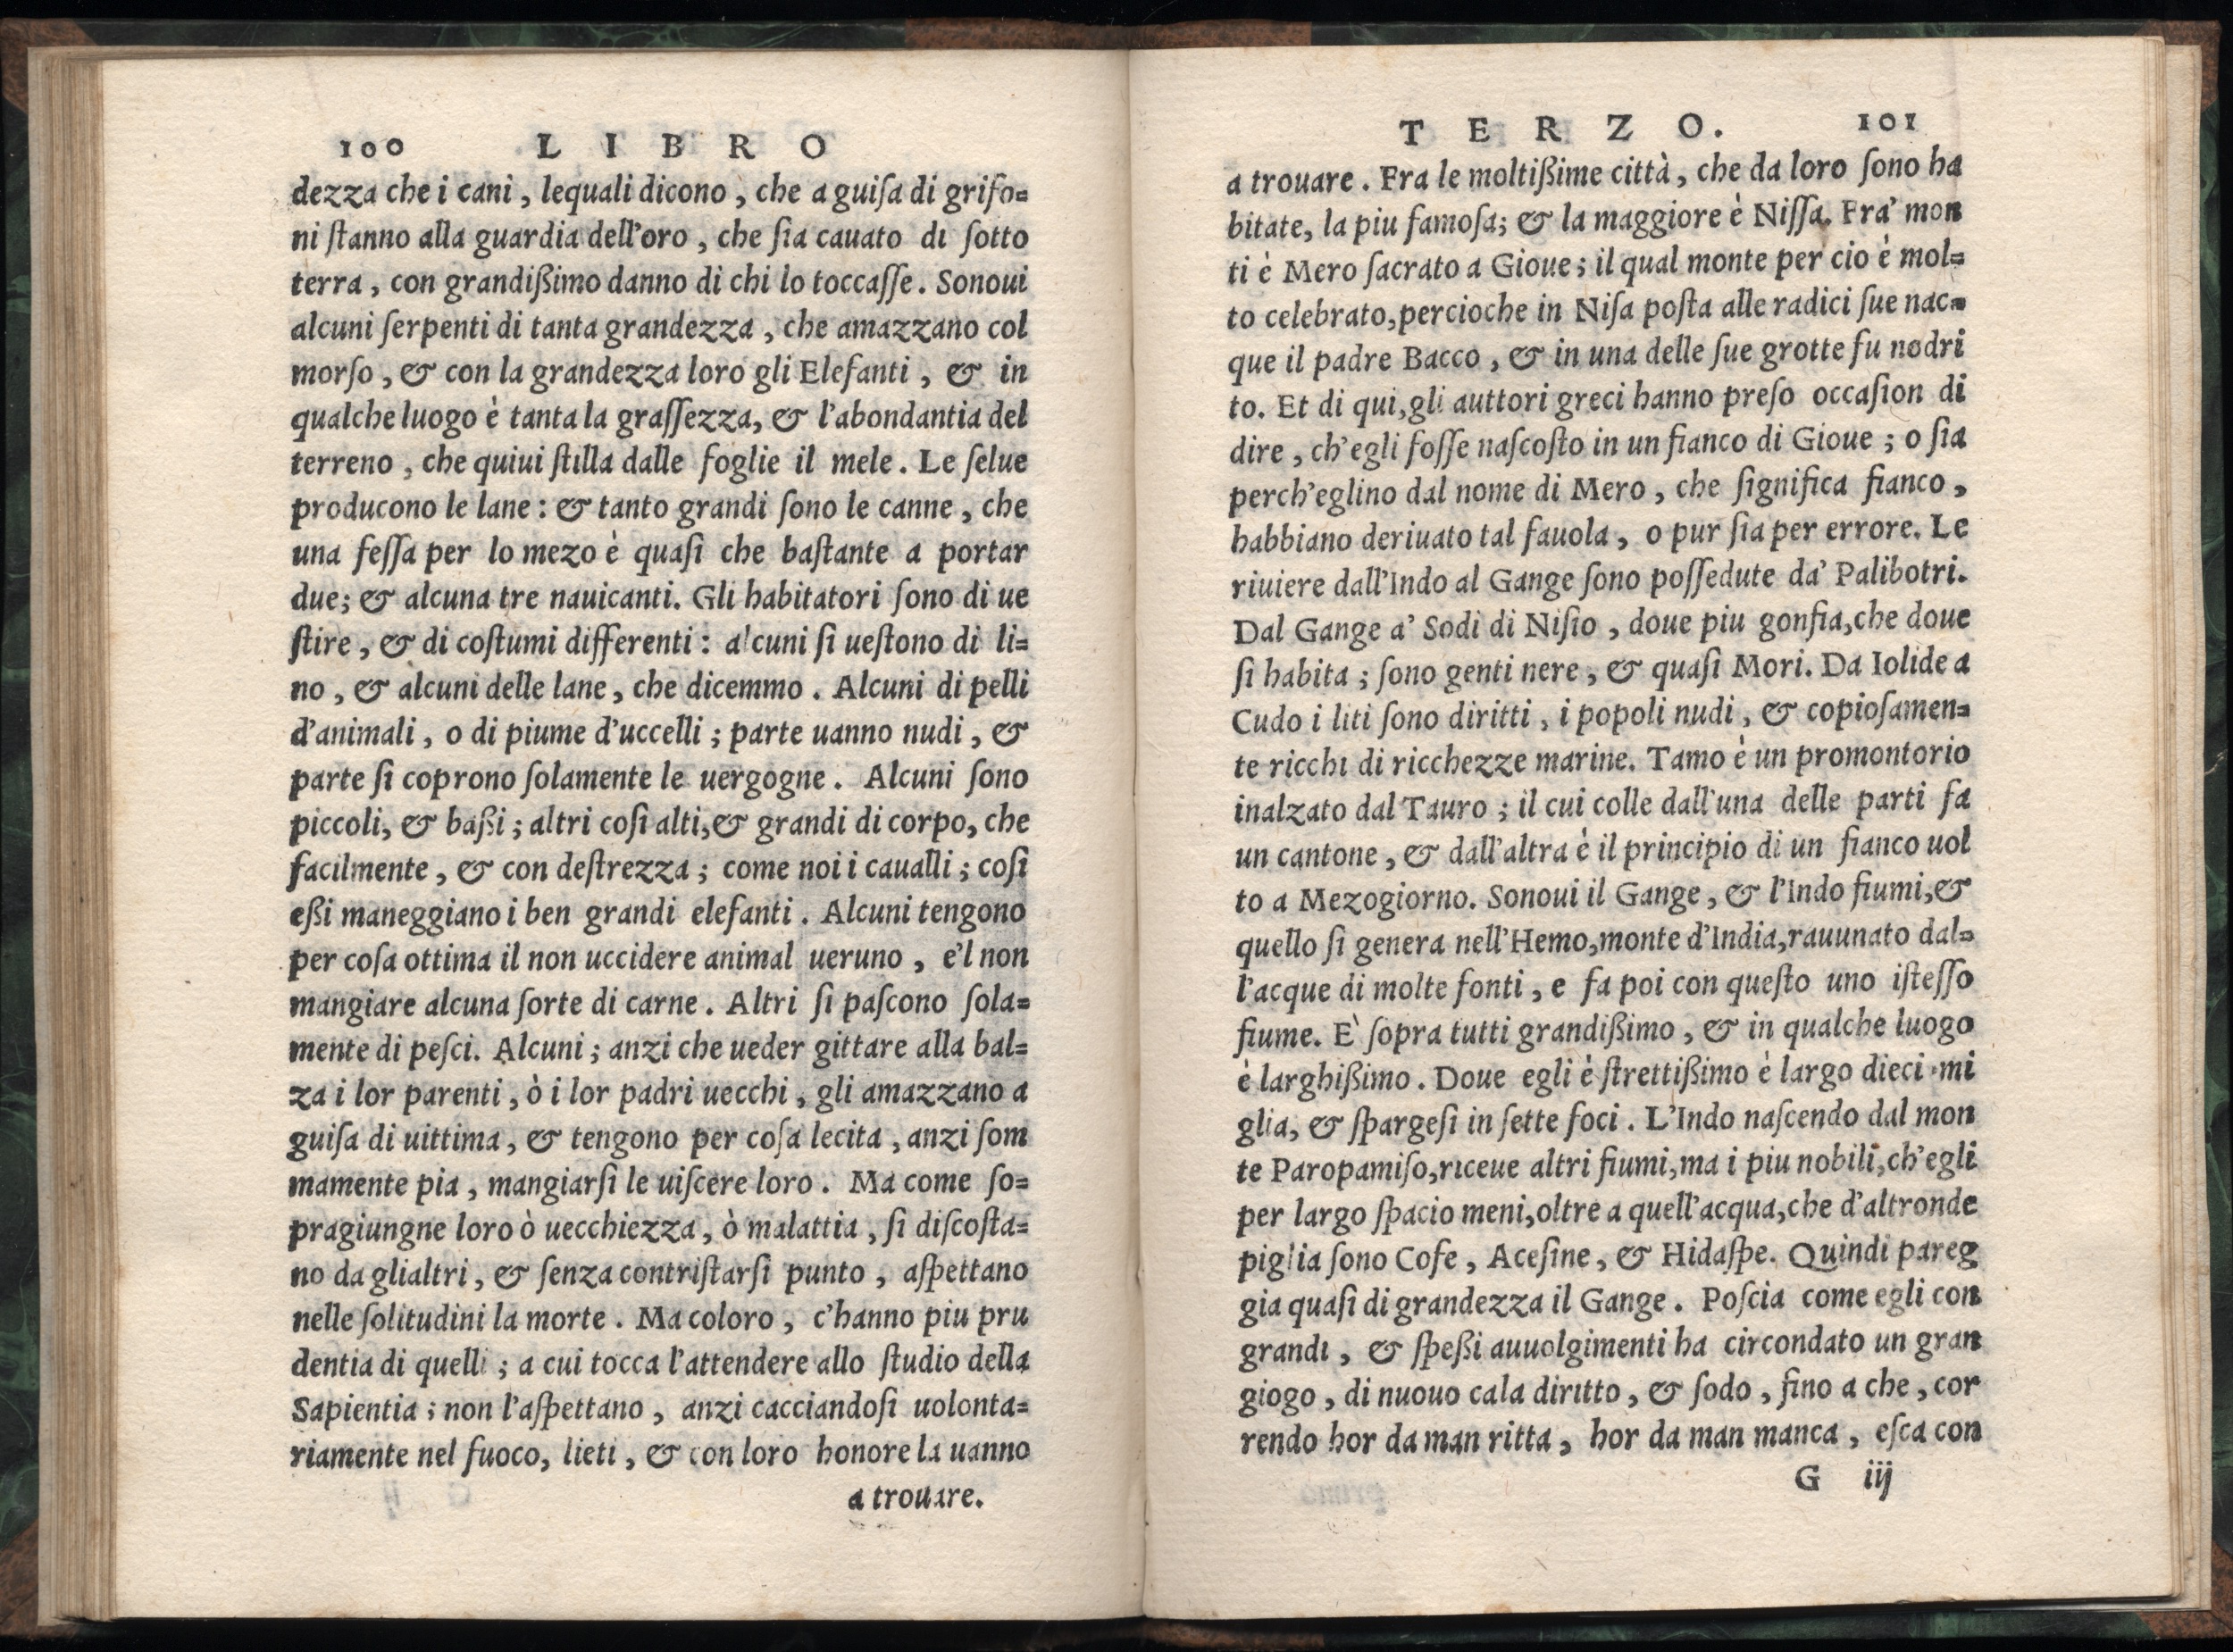 100 LIBRO
dezza che i cani, lequali dicono, che a guiſa di grifo=
ni ſtanno alla guardia dell'oro, che ſia cauato di ſotto
terra, con grandißimo danno di chi lo toccaſſe. Sonoui
alcuni ſerpenti di tanta grandezza, che amazzano col
morſo, & con la grandezza loro gli Elefanti, & in
qualche luogo è tanta la graſſezza, & l'abondantia del
terreno, che quiui ſtilla dalle foglie il mele. Le ſelue
producono le lane: & tanto grandi ſono le canne, che
una feſſa per lo mezo è quaſi che baſtante a portar
due; & alcuna tre nauicanti. Gli habitatori ſono di ue
ſtire, & di coſtumi differenti: alcuni ſi ueſtono di li=
no, & alcuni delle lane, che dicemmo. Alcuni di pelli
d'animali, o di piume d'uccelli; parte uanno nudi, &
parte ſi coprono ſolamente le uergogne. Alcuni ſono
piccoli, & baßi; altri coſi alti,& grandi di corpo, che
facilmente, & con deſtrezza; come noi i caualli; coſi
eßi maneggiano i ben grandi elefanti. Alcuni tengono
per coſa ottima il non uccidere animal ueruno, e'l non
mangiare alcuna ſorte di carne. Altri ſi paſcono ſola=
mente di peſci. Alcuni; anzi che ueder gittare alla bal=
za i lor parenti, ò i lor padri uecchi, gli amazzano a
guiſa di uittima, & tengono per coſa lecita, anzi ſom
mamente pia, mangiarſi le uiſcere loro. Ma come ſo=
pragiungne loro ò uecchiezza, ò malattia, ſi diſcoſta=
no da glialtri, & ſenza contriſtarſi punto, aſpettano
nelle ſolitudini la morte. Ma coloro, c'hanno piu pru
dentia di quelli; a cui tocca l'attendere allo ſtudio della
Sapientia; non l'aſpettano, anzi cacciandoſi uolonta=
riamente nel fuoco, lieti, & con loro honore la uanno
a trouare.
TERZO. 101
a trouare. Fra le moltißime città, che da loro ſono ha
bitate, la piu famoſa; & la maggiore è Niſſa. Fra' mon
ti è Mero ſacrato a Gioue; il qual monte per cio è mol=
to celebrato,percioche in Niſa poſta alle radici ſue nac=
que il padre Bacco, & in una delle ſue grotte fu nodri
to. Et di qui,gli auttori greci hanno preſo occaſion di
dire, ch'egli foſſe naſcoſto in un fianco di Gioue; o ſia
perch'eglino dal nome di Mero, che ſignifica fianco,
habbiano deriuato tal fauola, o pur ſia per errore. Le
riuiere dall'Indo al Gange ſono poſſedute da' Palibotri.
Dal Gange a' Sodi di Niſio, doue piu gonfia,che doue
ſi habita; ſono genti nere, & quaſi Mori. Da Iolide a
Cudo i liti ſono diritti, i popoli nudi, & copioſamen=
te ricchi di ricchezze marine. Tamo è un promontorio
inalzato dal Tauro; il cui colle dall'una delle parti fa
un cantone, & dall'altra è il principio di un fianco uol
to a Mezogiorno. Sonoui il Gange, & l'Indo fiumi,&
quello ſi genera nell'Hemo,monte d'India,rauunato dal=
l'acque di molte fonti, e fa poi con queſto uno iſteſſo
fiume. E' ſopra tutti grandißimo, & in qualche luogo
è larghißimo. Doue egli è ſtrettißimo è largo dieci mi
glia, & ſpargeſi in ſette foci. L'Indo naſcendo dal mon
te Paropamiſo,riceue altri fiumi,ma i piu nobili,ch'egli
per largo ſpacio meni,oltre a quell'acqua,che d'altronde
piglia ſono Cofe, Aceſine, & Hidaſpe. Quindi pareg
gia quaſi di grandezza il Gange. Poſcia come egli con
grandi, & ſpeßi auuolgimenti ha circondato un gran
giogo, di nuouo cala diritto, & ſodo, fino a che, cor
rendo hor da man ritta, hor da man manca, eſca con
G iij